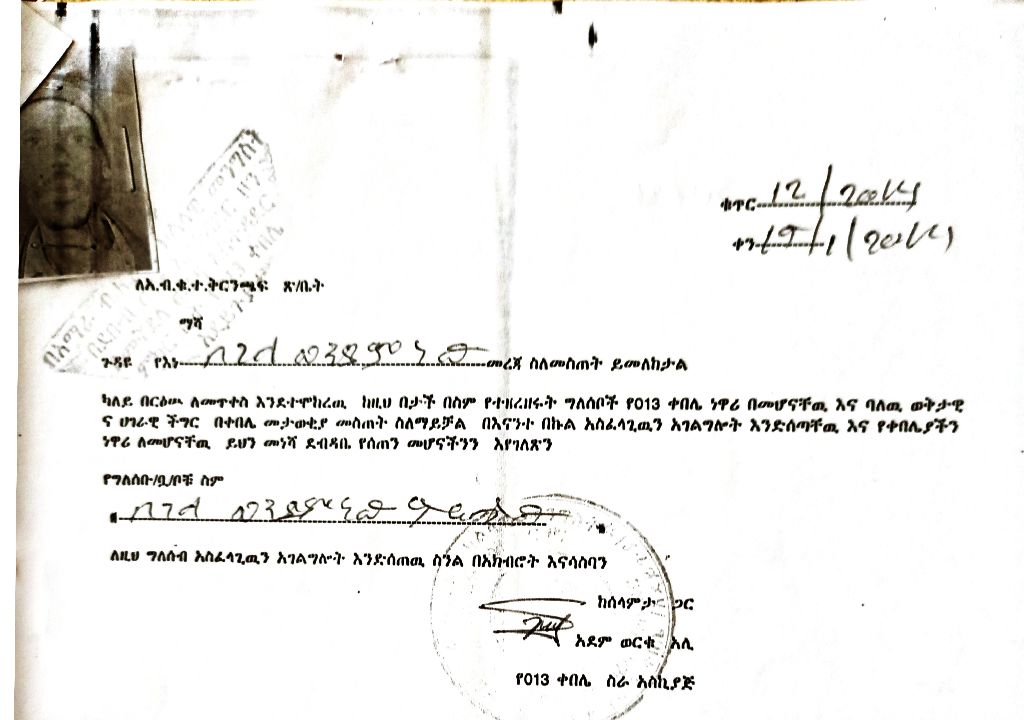 ቁጥር 12/2014
ቀን 19/1/2014
ለአ.ብ.ቁ.ተ.ቅርንጫፍ ጽ/ቤት
ማሻ
ጉዳዩ የእነ መረጃ ስለመስጠት ይመለከታል
ካለይ በርዕሡ ለመጥቀስ እንደተሞከረዉ ከዚህ በታች በስም የተዘረዘሩት ግለሰቦች የ013 ቀበሌ ነዋሪ በመሆናቸዉ እና ባለዉ ወቅታዊ
ና ሀገራዊ ችግር በቀበሌ መታወቂያ መስጠት ስለማይቻል በእናንተ በኩል አስፈላጊዉን አገልግሎት እንድሰጣቸዉ እና የቀበሌያችን
ነዋሪ ለመሆናቸዉ ይህን መነሻ ደብዳቤ የሰጠን መሆናችንን እየገለጽን
የግለሰቡ/ቧ/ቦቹ ስም
ለዚህ ግለሰብ አስፈላጊዉን አገልግሎት እንድሰጠዉ ስንል በአክብሮት እናሳስባን
ከሰላምታ ጋር
አደም ወርቁ አሊ
የ013 ቀበሌ ስራ አስኪያጅ